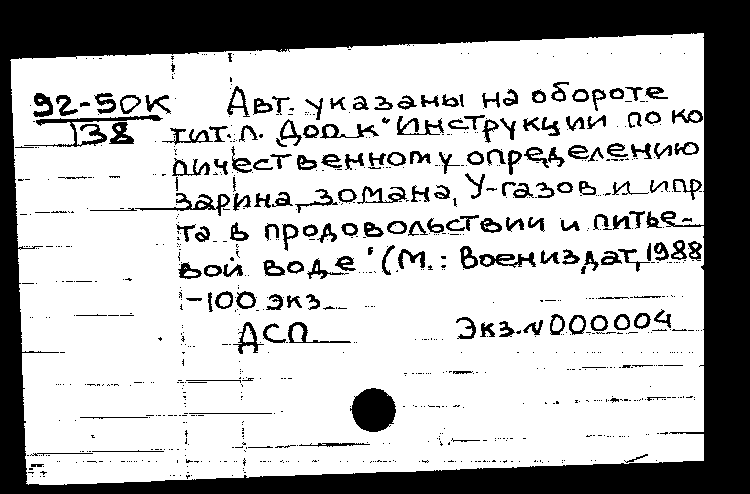 92-50К Авт. указаны на обороте
138 тит. л. Доп. к "Инструкции по ко
личественному определению
зарина, зомана, У-газов и ипр
та в продовольствии и питье-
вой воде" (М.: Воениздат, 1988
-100 экз.
ДСП. Экз. N 000004